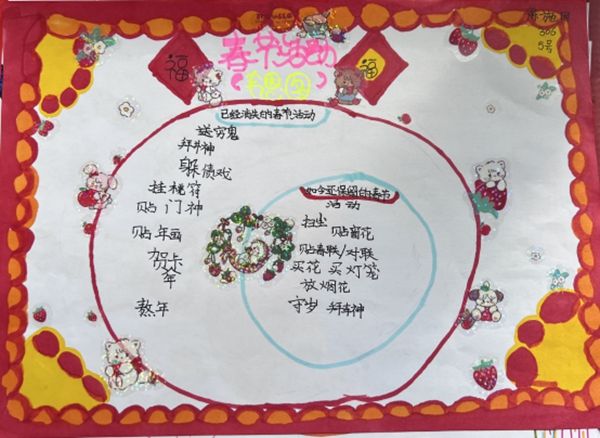 5号
福
春节活动
福
已经消失的春节活动
送穷鬼
拜井神
躲债戏
挂桃符
贴门神
贴年画
贺卡
年
熬年
如今还保留的春节
活动
扫尘
贴窗花
贴春联/对联
买花 买灯笼
放烟花
守岁